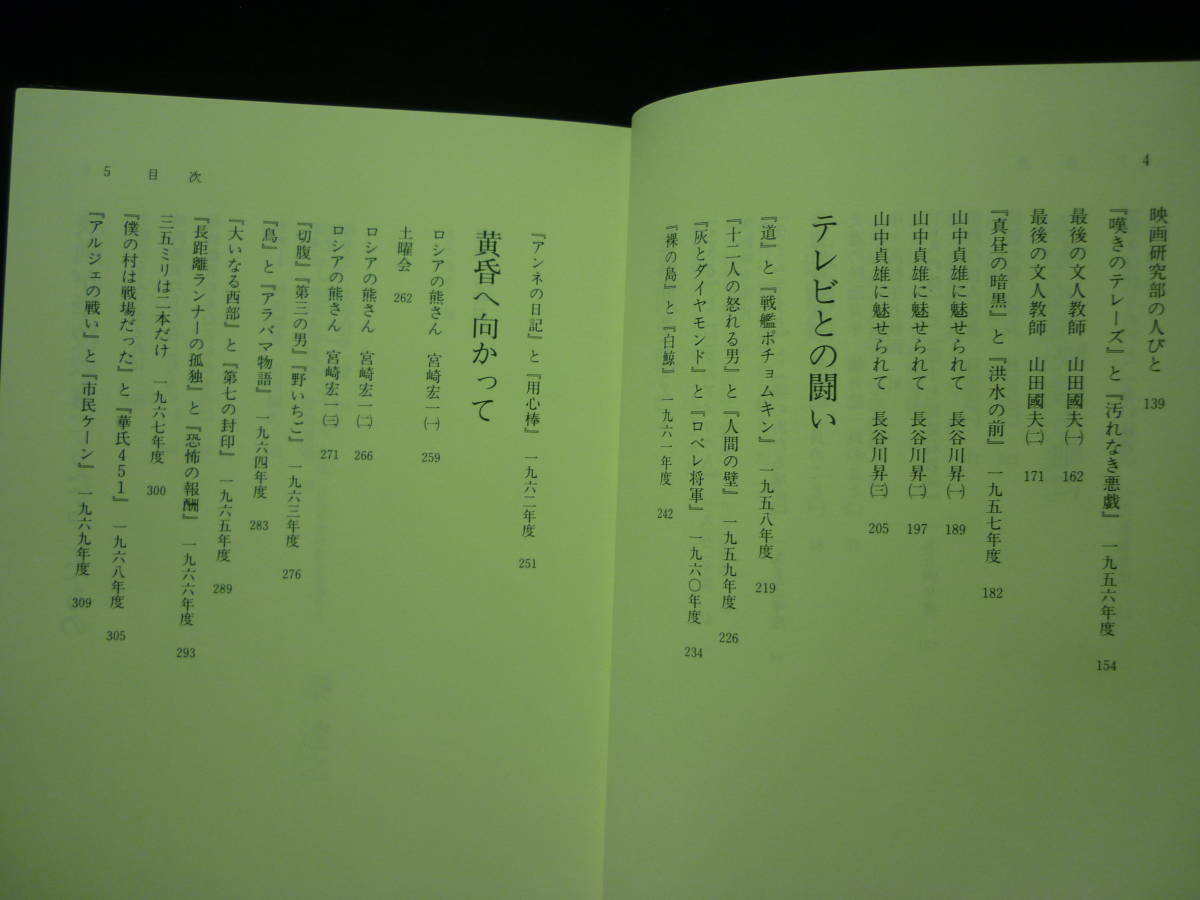 4
映画研究部の人びと 139
『嘆きのテレーズ』と『汚れなき悪戯』 一九五六年度 154
最後の文人教師 山田國夫㈠ 162
最後の文人教師 山田國夫㈡ 171
『真昼の暗黒』と『洪水の前』 一九五七年度 182
山中貞雄に魅せられて 長谷川昇㈠ 189
山中貞雄に魅せられて 長谷川昇㈡ 197
山中貞雄に魅せられて 長谷川昇㈢ 205
テレビとの闘い
『道』と『戦艦ポチョムキン』 一九五八年度 219
『十二人の怒れる男』と『人間の壁』 一九五九年度 226
『灰とダイヤモンド』と『ロベレ将軍』 一九六〇年度 234
『裸の島』と『白鯨』 一九六一年度 242
5 目次
『アンネの日記』と『用心棒』 一九六二年度 251
黄昏へ向かって
ロシアの熊さん 宮崎宏一㈠ 259
土曜会 262
ロシアの熊さん 宮崎宏一㈡ 266
ロシアの熊さん 宮崎宏一㈢ 271
『切腹』『第三の男』『野いちご』 一九六三年度 276
『鳥』と『アラバマ物語』 一九六四年度 283
『大いなる西部』と『第七の封印』 一九六五年度 289
『長距離ランナーの孤独』と『恐怖の報酬』 一九六六年度 293
三五ミリは二本だけ 一九六七年度 300
『僕の村は戦場だった』と『華氏451』 一九六八年度 305
『アルジェの戦い』と『市民ケーン』 一九六九年度 309